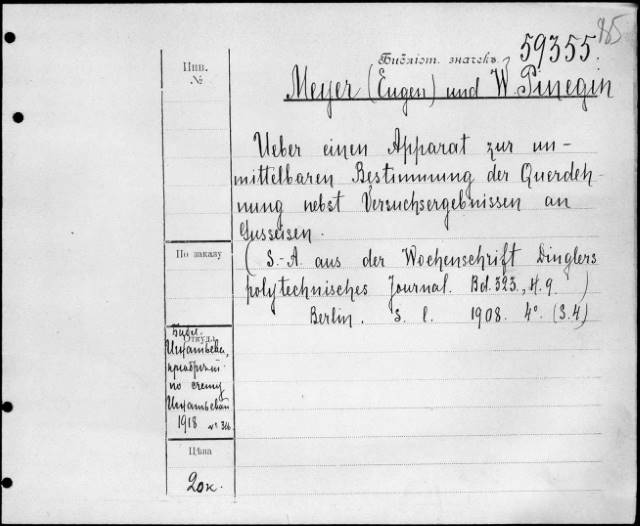 85
Библіот. значекъ 59355.
Инв.
№
Meyer (Eugen) und W. Pinegin
Ueber einen Apparat zur un-
mittelbaren Bestimmung der Querdeh-
nung nebst Versuchsergebnissen an
Gusseisen.
(S.-A. aus der Wochenschrift Dinglers
polytechnisches Journal. Bd. 323., H. 9.)
Berlin. s. l. 1908. 4° (S. 4)
По заказу
Откуда
Библ.
Игнатьева,
приобрѣт.
по счету
Игнатьевой
1918 № 316
Цѣна
20к.